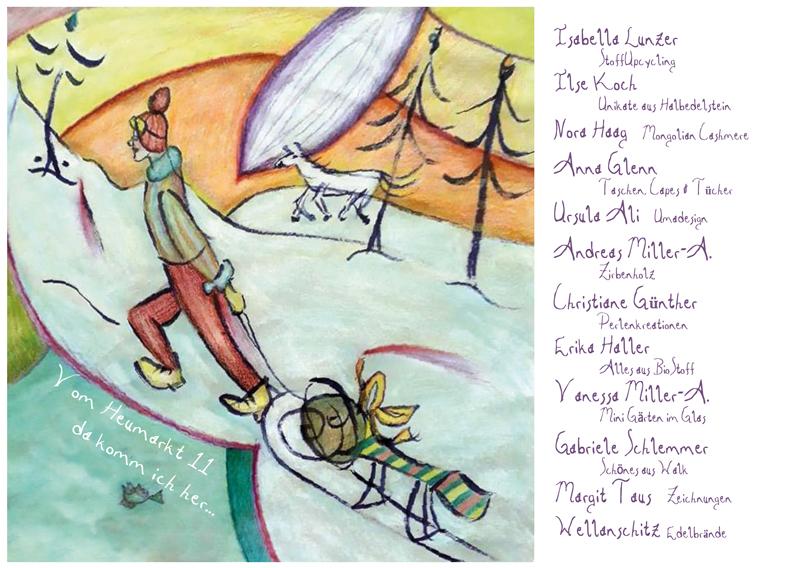 Vom Heumarkt 11
da komm ich her...
Isabella Lunzer
StoffUpcycling
Ilse Koch
Unikate aus Halbedelstein
Nora Haag Mongolian Cashmere
Anna Glenn
Taschen, Capes & Tücher
Ursula Ali Umadesign
Andreas Miller-A.
Zirbenholz
Christiane Günther
Perlenkreationen
Erika Haller
Alles aus BioStoff
Vanessa Miller-A.
Mini Gärten im Glas
Gabriele Schlemmer
Schönes aus Walk
Margit Taus Zeichnungen
Wellanschitz Edelbrände